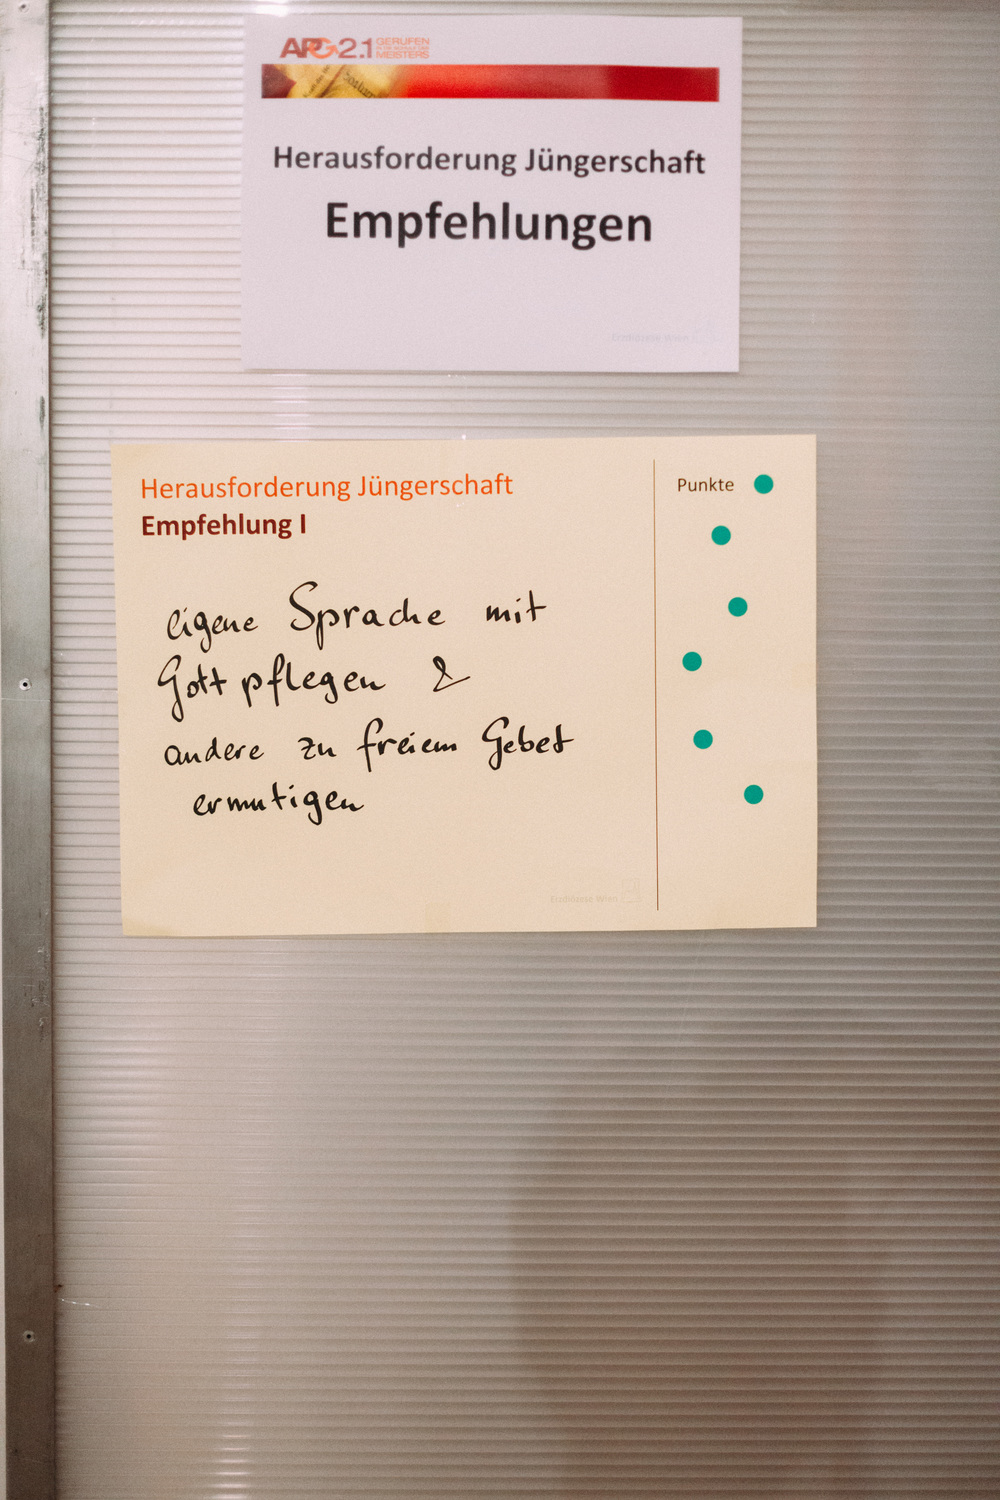 APG2.1 GERUFEN
MEISTERS
Herausforderung Jüngerschaft
Empfehlungen
Erzdiözese Wien
Herausforderung Jüngerschaft
Empfehlung I
Punkte
eigene Sprache mit
Gott pflegen &
andere zu freiem Gebet
ermutigen
Erzdiözese Wien